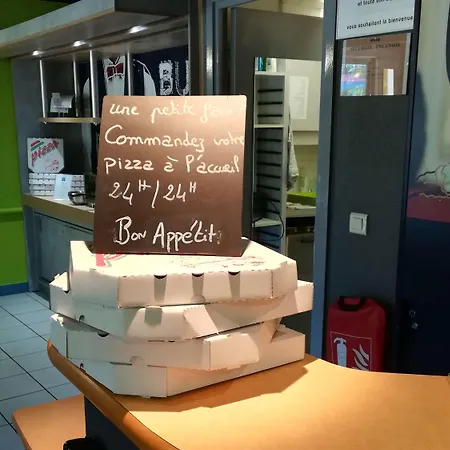 et toute son équipe
vous souhaitent la bienvenue
une petite faim
Commandez votre
pizza à l'accueil
24H/24H
Bon Appétit
pizza